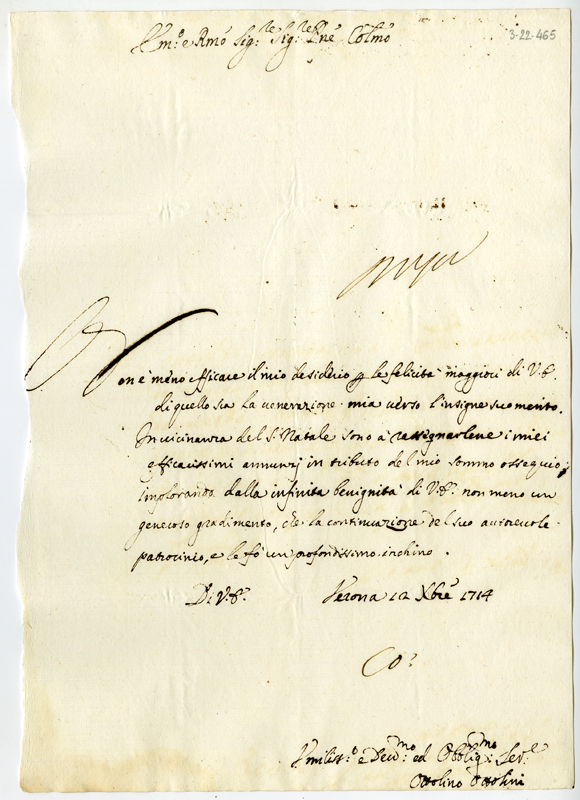 Em:o e Rmo Sig:re Sig:re Pne Colmo
3-22-465
Non è meno efficace il mio desiderio p le felicità maggiori di V.E.
di quello sia la venerazione mia verso l'insigne suo merito.
In vicinanza del S. Natale sono à rassegnarlene i miei
efficacissimi annunzj in tributo del mio sommo ossequio,
implorando dalla infinita benignità di V.E. non meno un
generoso gradimento, che la continuazione del suo autorevole
patrocinio, e le fò un profondissimo inchino.
Di V.E. Verona 12 Xbre 1714
Co:
Vmiliss:o e Deu:mo ed Obblig:mo Ser:e
Ottolino Ottolini